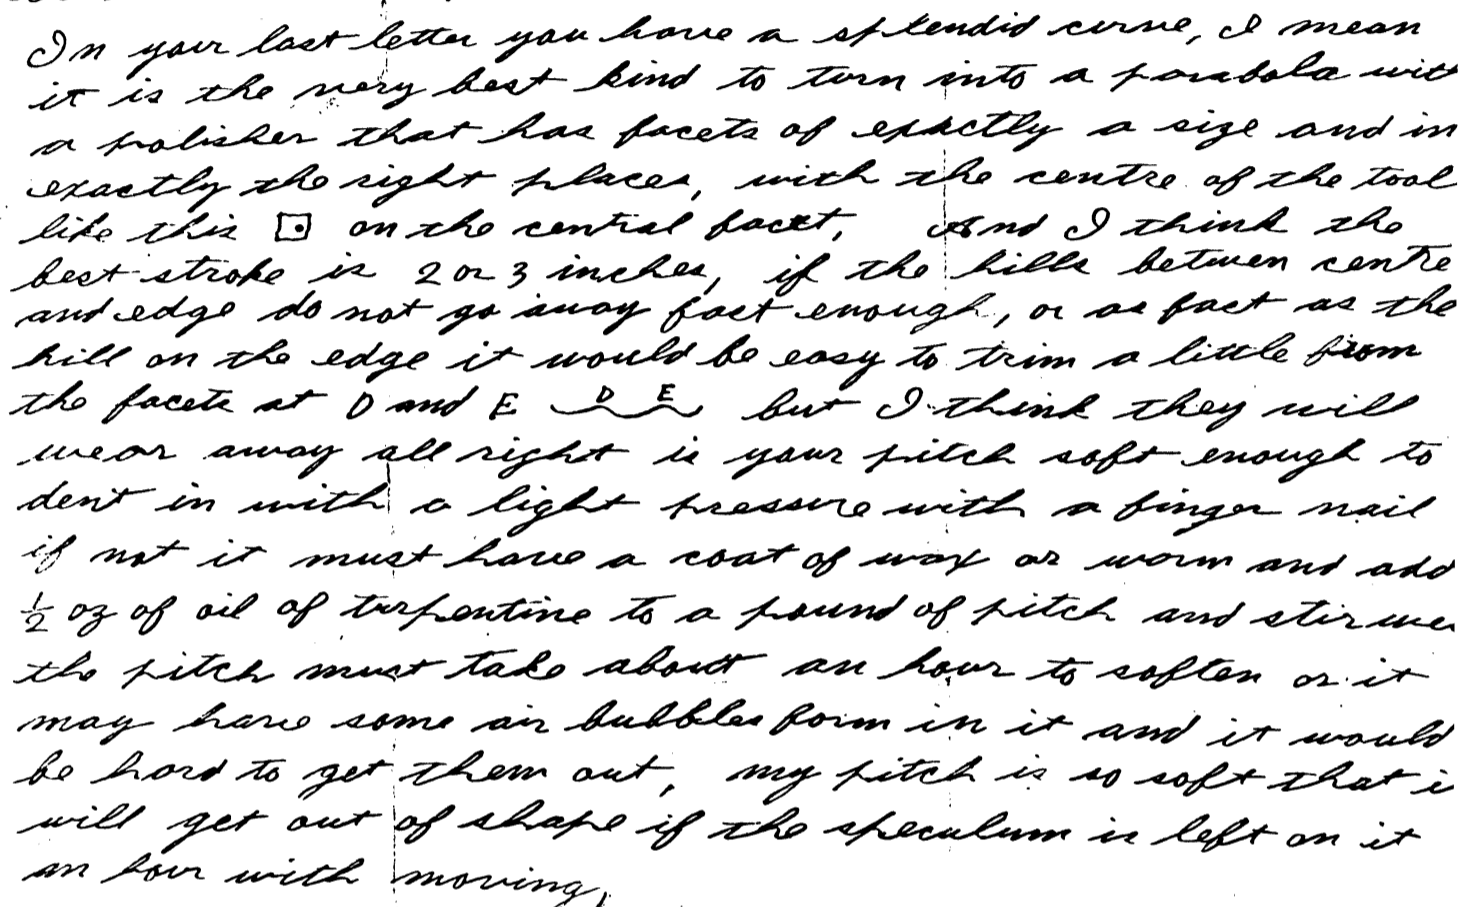 In your last letter you have a splendid curve, I mean
it is the very best kind to turn into a parabola wit
a polisher that has facets of exactly a size and in
exactly the right places, with the centre of the tool
like this on the central facet, And I think the
best stroke is 2 or 3 inches, if the hills between centre
and edge do not go away fast enough, or as fast as the
hill on the edge it would be easy to trim a little from
the facets at D and E D E but I think they will
wear away all right is your pitch soft enough to
dent in with a light pressure with a finger nail
if not it must have a coat of wax or warm and add
1/2 oz of oil of turpentine to a pound of pitch and stir we
the pitch must take about an hour to soften or it
may have some air bubbles form in it and it would
be hard to get them out, my pitch is so soft that i
will get out of shape if the speculum is left on it
an hour with moving,